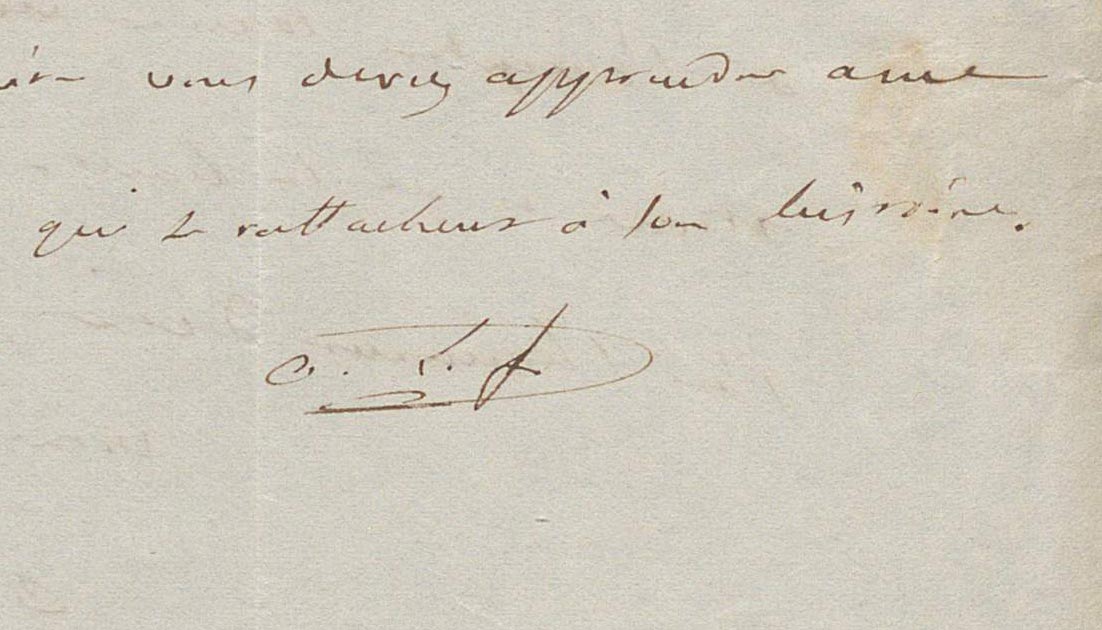 vous devez apprendre avec
qui se rattachent à son histoire.